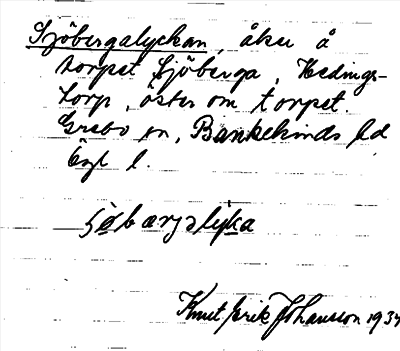 Sjöbergalyckan, åker å
torpet Sjöberga, Hedings-
torp, öster om torpet.
Grebo sn, Bankekinds hd
Ögl l.
Knut Erik Johansson 1934